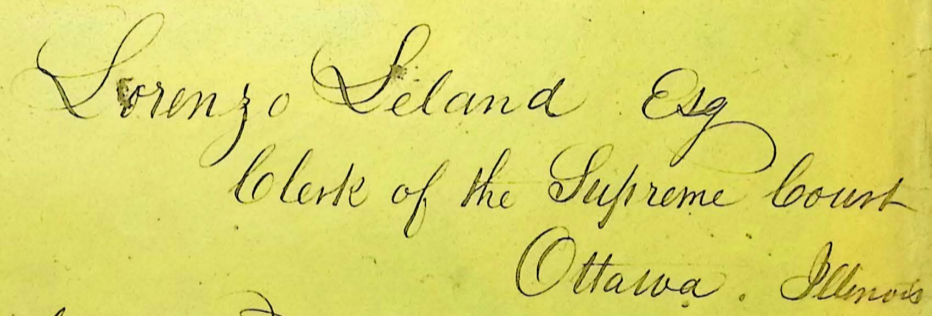 Lorenzo Leland Esq
Clerk of the Supreme Court
Ottawa. Illinois